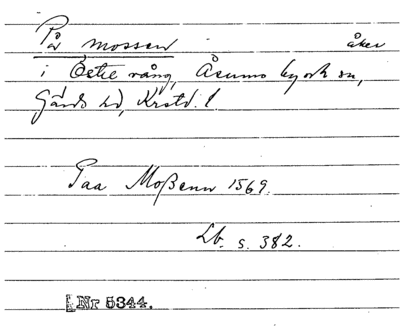 På mossen åker
i Östre vång, Åsums by och sn,
Gärds hd, Krstd. l
Paa Moßenn 1569.
Lb. s. 382.
Nr 5344.